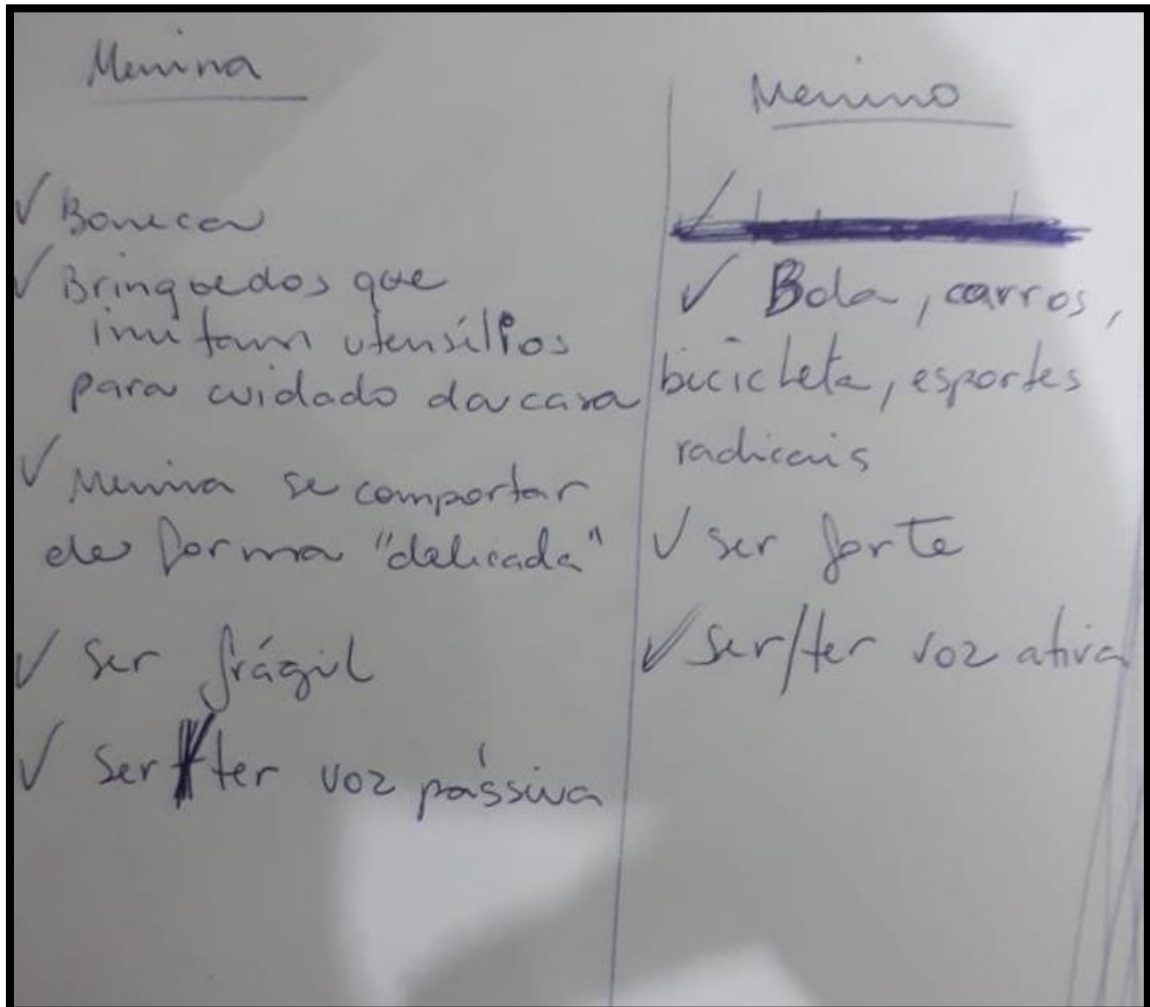 Menina
✓ Boneca
✓ Brinquedos que
imitam utensílios
para cuidado da casa
✓ Menina se comportar
de forma "delicada"
✓ Ser frágil
✓ Ser/ter voz pássiva
Menino
✓ Bola, carros,
bicicleta, esportes
radicais
✓ Ser forte
✓ Ser/ter voz ativa